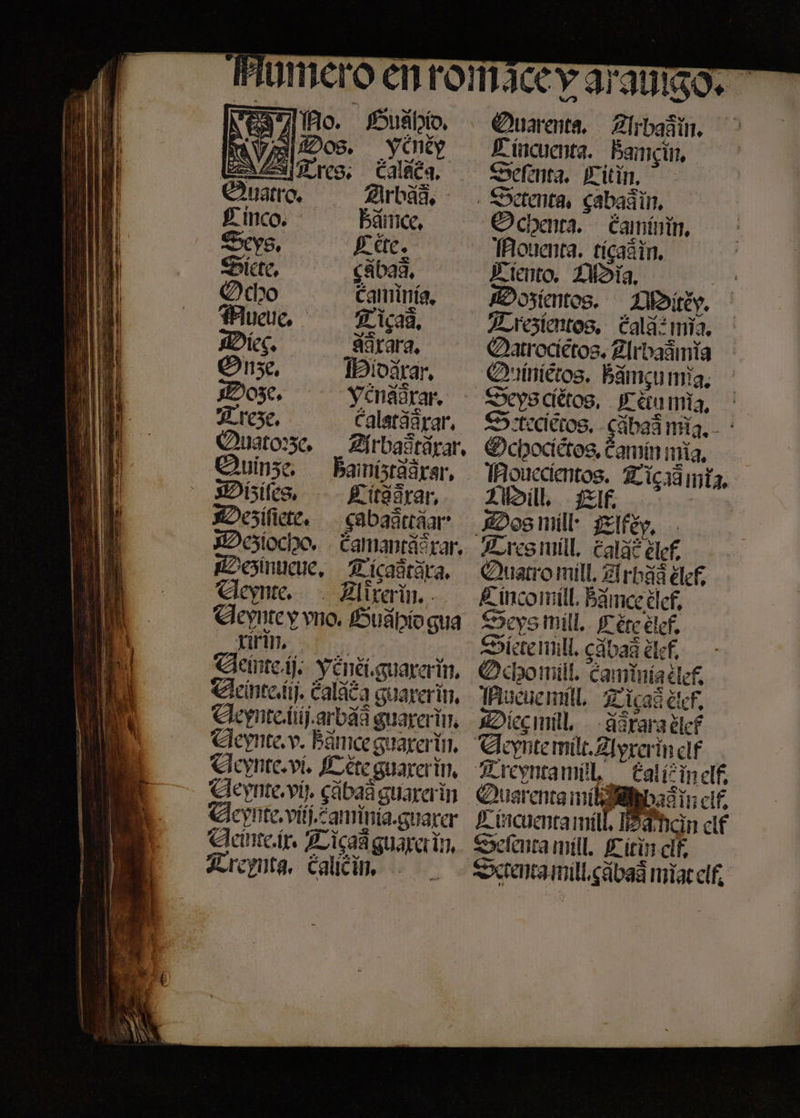 Numero en romãce y arauigo.
Uno. Guãhio,
Dos, yẽnẽy
Tres; Calãča,
Quatro, Arbââ,
Cinco, hâmce,
Seys, Cẽte.
Siete, çâbaâ,
Ocho Čaminía,
Nueue, Tiçaâ,
Diez, ââxara,
Onze, Hidâxar,
Doze, yẽnââxar,
Treze, Čalatââxar,
Quatorze, Arbaâtâxar,
Quinze, hamiztââxar,
Disises, Citââxar,
Desisiete, çabaâttâar
Desiocho, Čamantââxar,
Desinueue, Tiçaâtâxa,
Ueynte, Aîxerin,
Ueynte y vno. Guâhio gua
xirin,
Ueinte.ij. yẽnẽi.guaxerin,
Ueinte.iij. Čalâča guaxerin,
Ueynte.iiij.arbâã guaxerin,
Ueynte.v. hâmce guaxerin,
Ueynte.vi. Cẽte guaxerin,
Ueynte.vij. çâbaâ guaxerin
Ueynte.viij.čaminía.guaxer
Ueinte.ix. Tiçaâ guaxerin,
Treynta, Čaličin,
Quarenta, Arbaâin,
Cincuenta. hamçin,
Sesenta. Citin,
Setenta, çabaâin,
Ochenta. Čamínin,
Nouenta. tiçaâin,
Ciento, Mia,
Dozientos. Mitẽy.
Trezientos, Čalâč mia.
Quatrociẽtos, Arbaâmia
Quiniẽtos. hâmçu mia,
Seysciẽtos, Cẽtu mia,
Seteciẽtos, çâbaâ mia,
Ochociẽtos, čamin mia,
Nouecientos. Tiçaâ mia,
Mill. Elf,
Dos mill Elfẽy,
Tres mill. čalâč ẽlef,
Quatro mill. Arbâã ẽlef,
Cinco mill. hâmce ẽlef,
Seys mill. Cẽte ẽlef,
Siete mill. çâbaâ ẽlef,
Ocho mill. čaminía ẽlef,
Nueue mill. Tiçaâ ẽlef,
Diez mill. ââxara ẽlef
Ueynte mill. Ayxarin elf
Treynta mill, čaličin elf,
Quarenta mill, elf,
Cincuenta mill, hâmcin elf
Sesenta mill. Citin elf,
Setenta mill.çâbaâ miat elf,